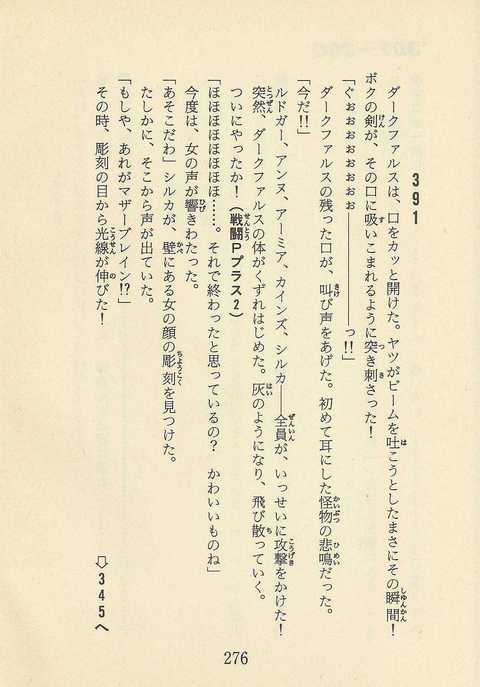 391
ダークファルスは、口をカッと開けた。ヤツがビームを吐こうとしたまさにその瞬間！
ボクの剣が、その口に吸いこまれるように突き刺さった！
「ぐぉぉぉぉぉぉぉぉ――――――っ!!」
ダークファルスの残った口が、叫び声をあげた。初めて耳にした怪物の悲鳴だった。
「今だ!!」
ルドガー、アンヌ、アーミア、カインズ、シルカ――全員が、いっせいに攻撃をかけた！
突然、ダークファルスの体がくずれはじめた。灰のようになり、飛び散っていく。
ついにやったか！（戦闘Ｐプラス２）
「ほほほほほほほほ……。それで終わったと思っているの？　かわいいものね」
今度は、女の声が響きわたった。
「あそこだわ」シルカが、壁にある女の顔の彫刻を見つけた。
たしかに、そこから声が出ていた。
「もしや、あれがマザーブレイン!?」
その時、彫刻の目から光線が伸びた！
⇨345へ
276